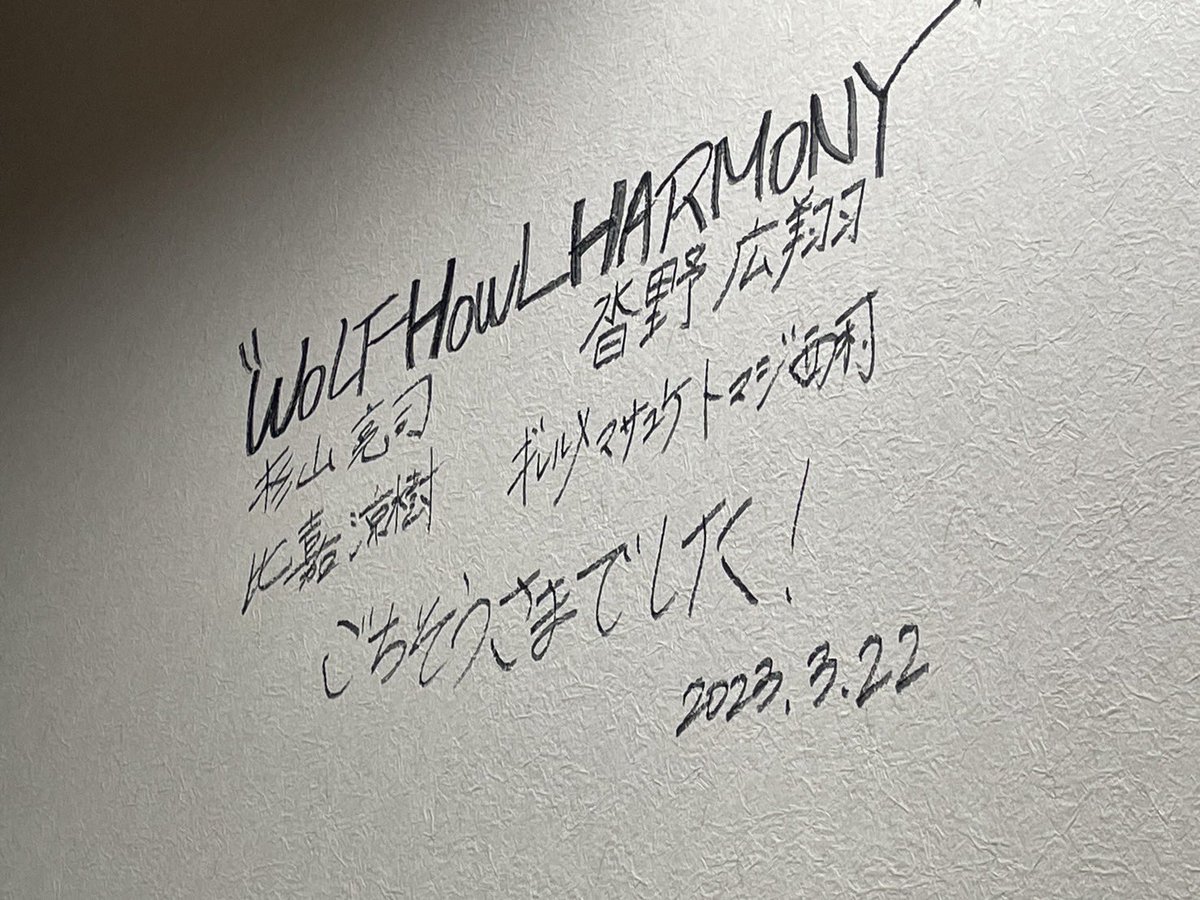 "WOLF HOWL HARMONY
杉山 亮司 沓野 広翔
比嘉 涼樹 ギレルメ マサユケ トマジ 西村
ごちそうさまでした!
2023.3.22